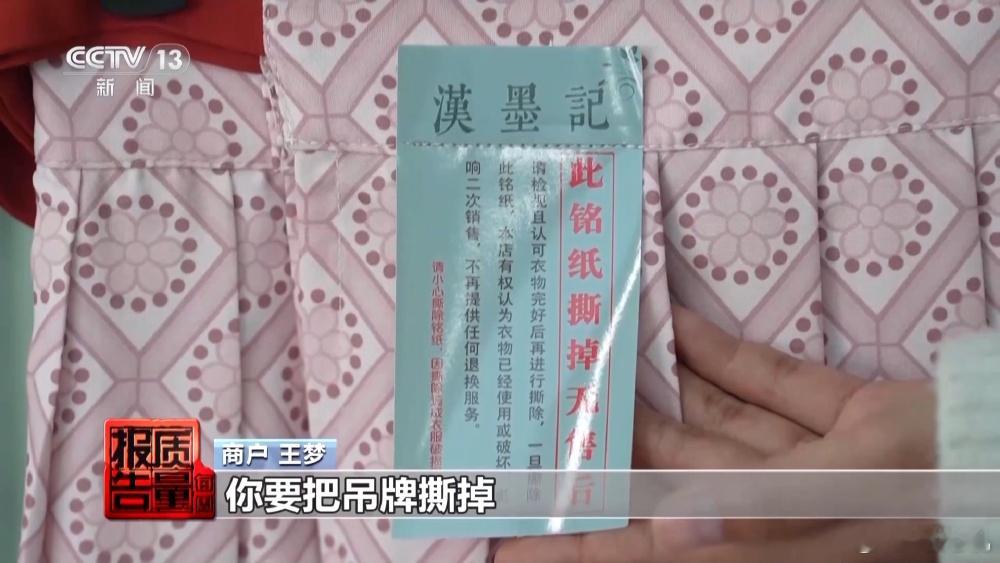 CCTV 13
新闻
漢墨記
此铭纸撕掉无售后
请检视且认可衣物完好后再进行撕除，一旦撕除
此铭纸，本店有权认为衣物已经使用或破坏
响二次销售，不再提供任何退换服务。
请小心撕除铭纸，因撕除造成衣服破损
质量报告
商户 王梦
你要把吊牌撕掉